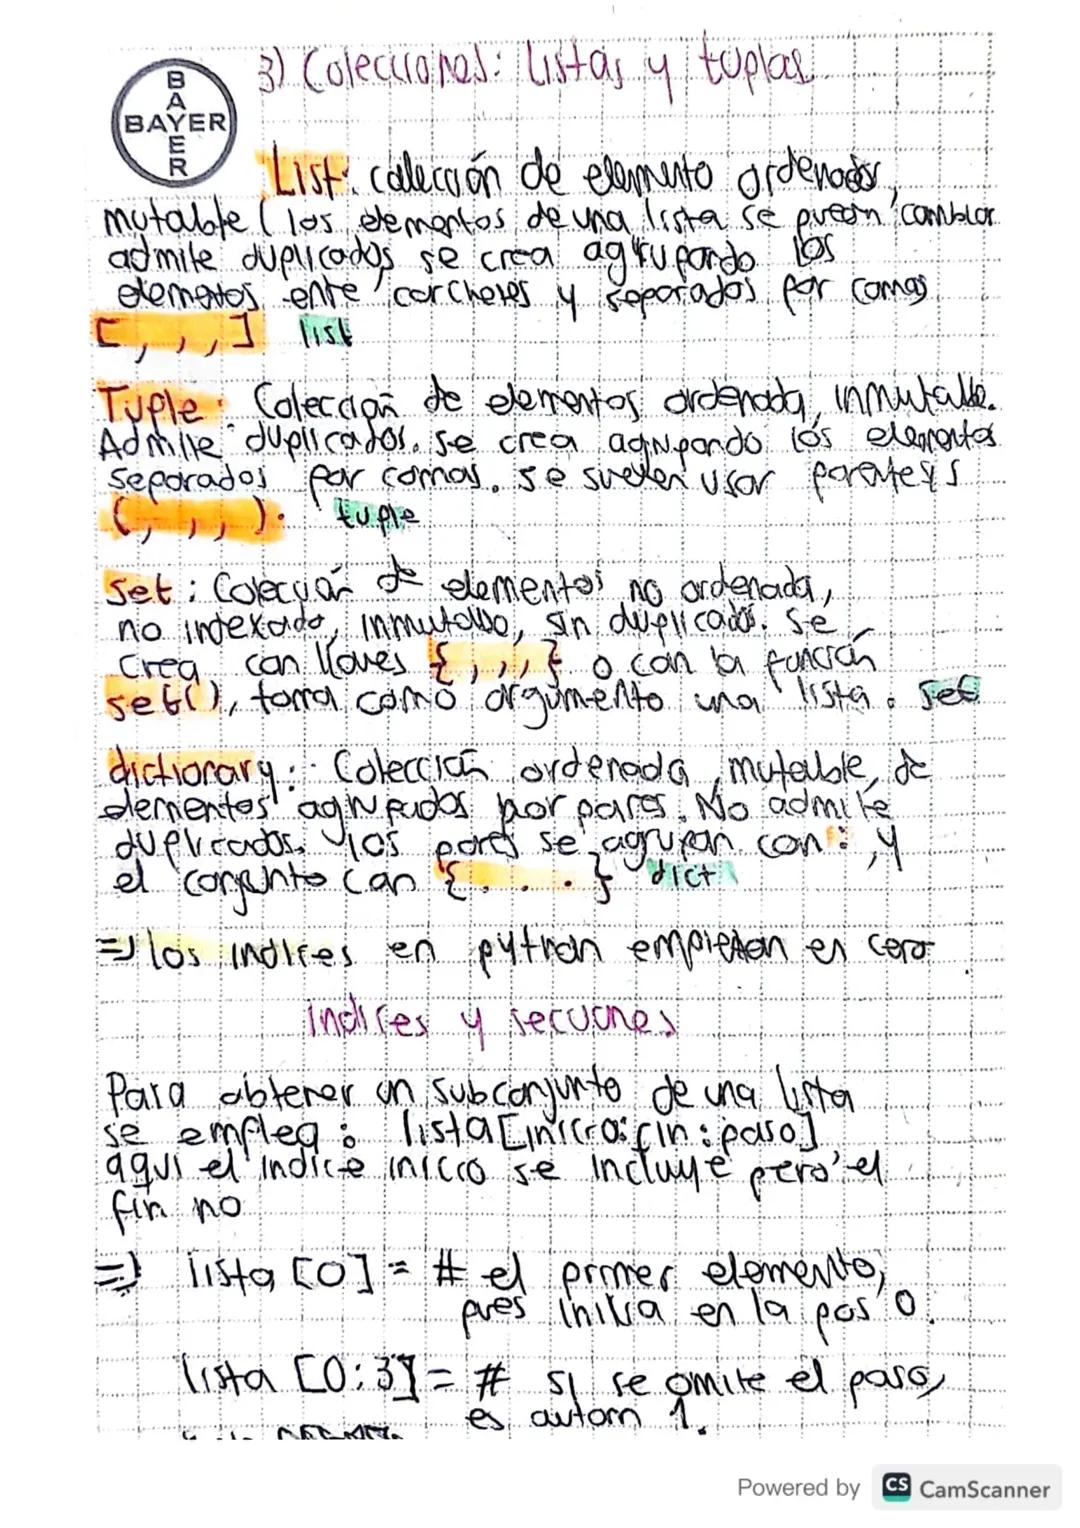 3) Colecciones: Listas y tuplas
BAYER
BAYER
List: colección de elemento ordenados,
mutable ( los elementos de una lista se pueen cambiar
admite duplicados se crea agrupando los
elementos ente corchetes y separados por comas
[ , , , ] list
Tuple: Colección de elementos ordenada, inmutable.
Admite duplicados. se crea agrupando los elementos
separados por comas. se suelen usar
( , , , ). tuple
Set: Colección de elementos no ordenada,
no indexado, inmutable, sin duplicados. Se
crea con llaves { , , , } o con la función
set(), toma como argumento una lista. Set
dictionary: Colección ordenada, mutable, de
elementos agrupados por pares. No admite
duplicados. los pares se agrupan con : , y
el conjunto con { . . . . } dict
=> los indices en python empiezan en cero
indices y secciones
Para obtener un subconjunto de una lista
se emplea: lista[inicio:fin:paso]
aqui el indice inicio se incluye pero el
fin no
=> lista [0] = # el primer elemento,
pues inicia en la pos 0.
lista [0:3] = # si se omite el paso,
es autom 1.
Powered by CS CamScanner